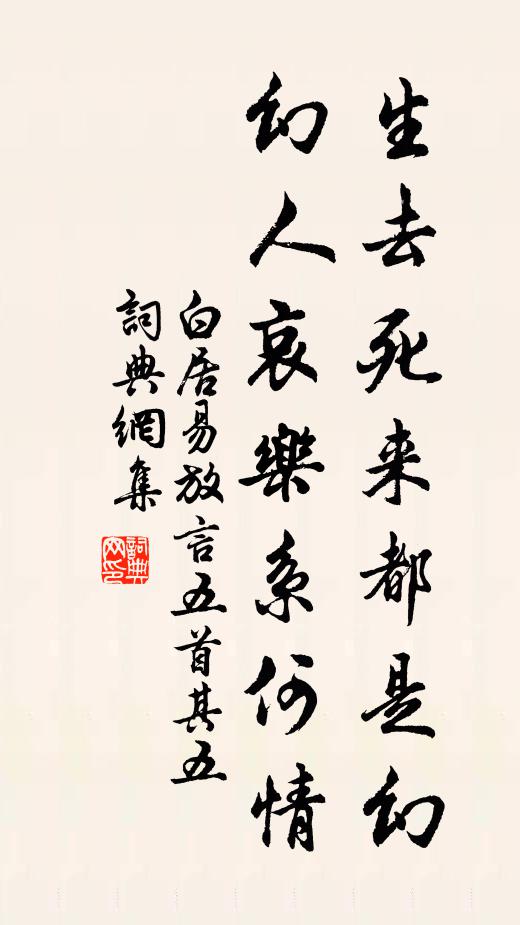 生去死来都是幻
幻人哀樂系何情
白居易放言五首其五
詞典網集
詞典網印